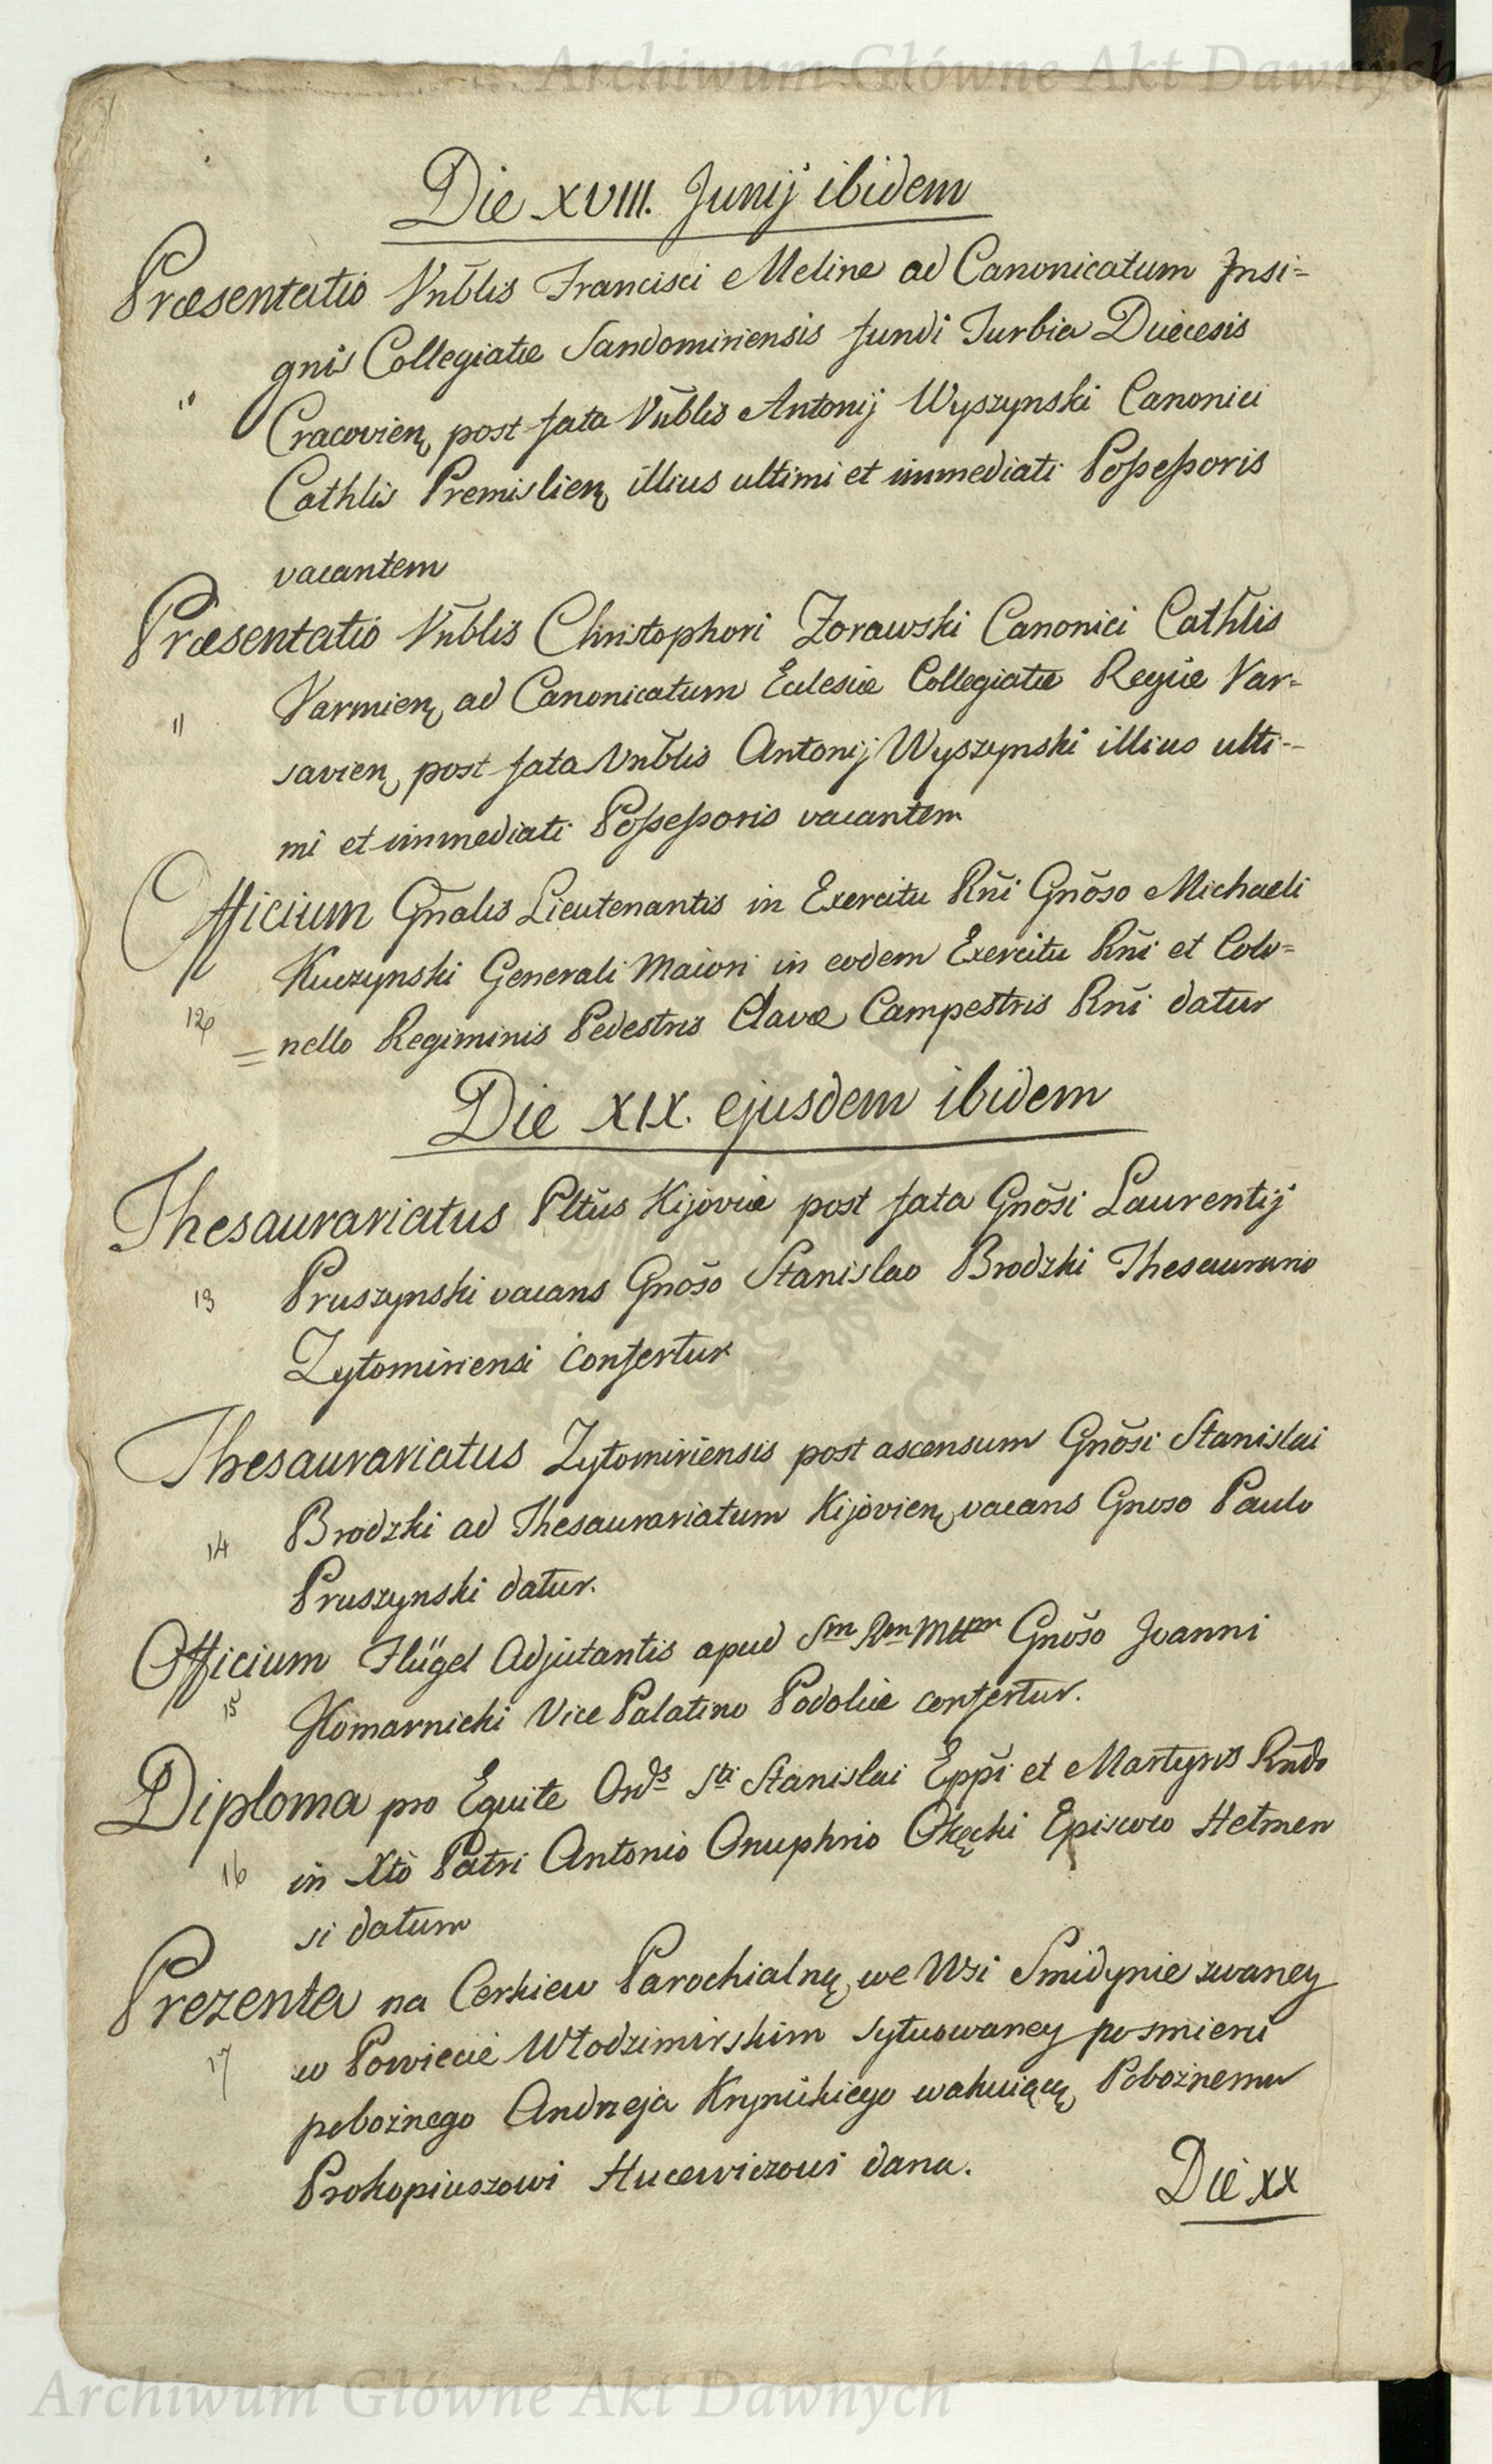 Archiwum Główne Akt Dawnych
Die XVIII. Junij ibidem
Præsentatio Vnblis Francisci Meline ad Canonicatum Insi=
gnis Collegiatæ Sandomiriensis fundi Turbia Diæcesis
10
Cracovien, post fata Vnblis Antonij Wyszynski Canonici
Cathlis Premislien, illius ultimi et immediati Possessoris
vacantem
Præsentatio Vnblis Christophori Zorawski Canonici Cathlis
Varmien, ad Canonicatum Eclesiæ Collegiatæ Regiæ Var-
11
savien, post fata Vnblis Antonij Wyszynski illius ulti-
mi et immediati Possessoris vacantem
Officium Gnalis Lieutenantis in Exercitu Rni Gnoso Michaeli
Kuczynski Generali Maiori in eodem Exercitu Rni et Colo=
12
=nello Regiminis Pedestris Clavæ Campestris Rni datur
Die XIX. ejusdem ibidem
Thesaurariatus Pltus Kijoviæ post fata Gnosi Laurentij
13 Pruszynski vacans Gnoso Stanislao Brodzki Thesaurario
Zytomiriensi confertur
Thesaurariatus Zytomiriensis post ascensum Gnosi Stanislai
14 Brodzki ad Thesaurariatum Kijovien, vacans Gnoso Paulo
Pruszynski datur.
Officium Flügel Adjutantis apud Sm Rm Mttem Gnoso Joanni
15 Komarnicki Vice Palatino Podoliæ confertur.
Diploma pro Equite Ords Sti Stanislai Eppi et Martyris Rndo
16 in Xto Patri Antonio Onuphrio Okęcki Episcoco Helmen
si datum
Prezenta na Cerkiew Parochialną we Wsi Smidynie zwaney
17 w Powiecie Włodzimirskim sytuowaney po smierci
pobożnego Andrzeja Krynickiego wakuiącą Pobożnemu
Prokopiuszowi Hucewiczowi dana.
Die XX
Archiwum Główne Akt Dawnych